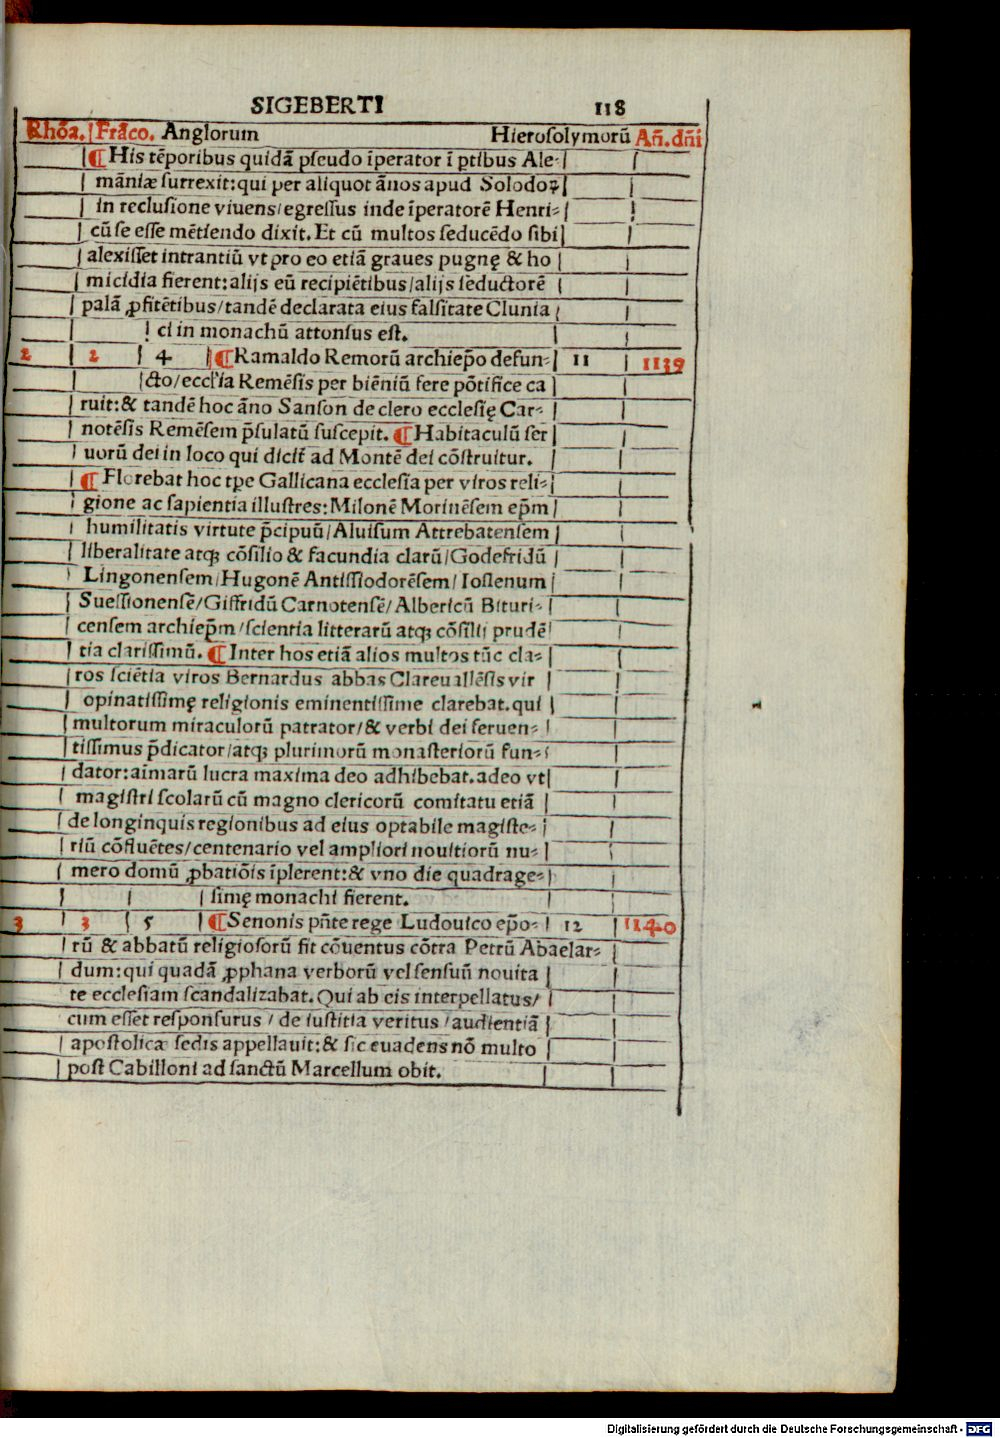 SIGEBERTI 118
Rhōa. Frāco. Anglorum Hierosolymorū Añ.dñi
¶ His tēporibus quidā pseudo īperator ī ptibus Ale-
māniæ surrexit: qui per aliquot ānos apud Solodoꝝ
in reclusione viuens/ egressus inde īperatorē Henri-
cū se esse mētiendo dixit. Et cū multos seducēdo sibi
alexisset intrantiū vt pro eo etiā graues pugnę & ho
micidia fierent: alijs eū recipiētibus/ alijs seductorē
palā ꝓfitētibus/ tandē declarata eius falsitate Clunia
ci in monachū attonsus est.
2 2 4 ¶ Ramaldo Remorū archiep̄o defun- 11 1139
cto/ eccl'ia Remēsis per biēniū fere pōtifice ca
ruit: & tandē hoc āno Sanson de clero ecclesię Car-
notēsis Remēsem p̄sulatū suscepit. ¶ Habitaculū ser
uorū dei in loco qui dicit̄ ad Montē dei cōstruitur.
¶ Florebat hoc tp̄e Gallicana ecclesia per viros reli-
gione ac sapientia illustres: Milonē Morinēsem ep̄m
humilitatis virtute p̄cipuū/ Aluisum Attrebatensem
liberalitate atqꝫ cōsilio & facundia clarū/ Godefridū
Lingonensem/ Hugonē Antissiodorēsem/ Ioslenum
Suessionensē/ Giffridū Carnotensē/ Albericū Bituri-
censem archiep̄m/ scientia litterarū atqꝫ cōsilij prudē
tia clarissimū. ¶ Inter hos etiā alios multos tūc cla-
ros sciētia viros Bernardus abbas Clareuallēsis vir
opinatissimę religionis eminentissime clarebat. qui
multorum miraculorū patrator/ & verbi dei feruen-
tissimus p̄dicator/ atqꝫ plurimorū monasteriorū fun-
dator: aīmarū lucra maxima deo adhibebat. adeo vt
magistri scolarū cū magno clericorū comitatu etiā
de longinquis regionibus ad eius optabile magiste-
riū cōfluētes/ centenario vel ampliori nouitiorū nu-
mero domū ꝓbatiōis īplerent: & vno die quadrage-
simę monachi fierent.
3 3 5 ¶ Senonis pn̄te rege Ludouico ep̄o- 12 1140
rū & abbatū religiosorū fit cōuentus cōtra Petrū Abaelar-
dum: qui quadā ꝓphana verborū vel sensuū nouita
te ecclesiam scandalizabat. Qui ab eis interpellatus/
cum esset responsurus / de iustitia veritus / audientiā
apostolicæ sedis appellauit: & sic euadens nō multo
post Cabilloni ad sanctū Marcellum obit.
Digitalisierung gefördert durch die Deutsche Forschungsgemeinschaft - DFG